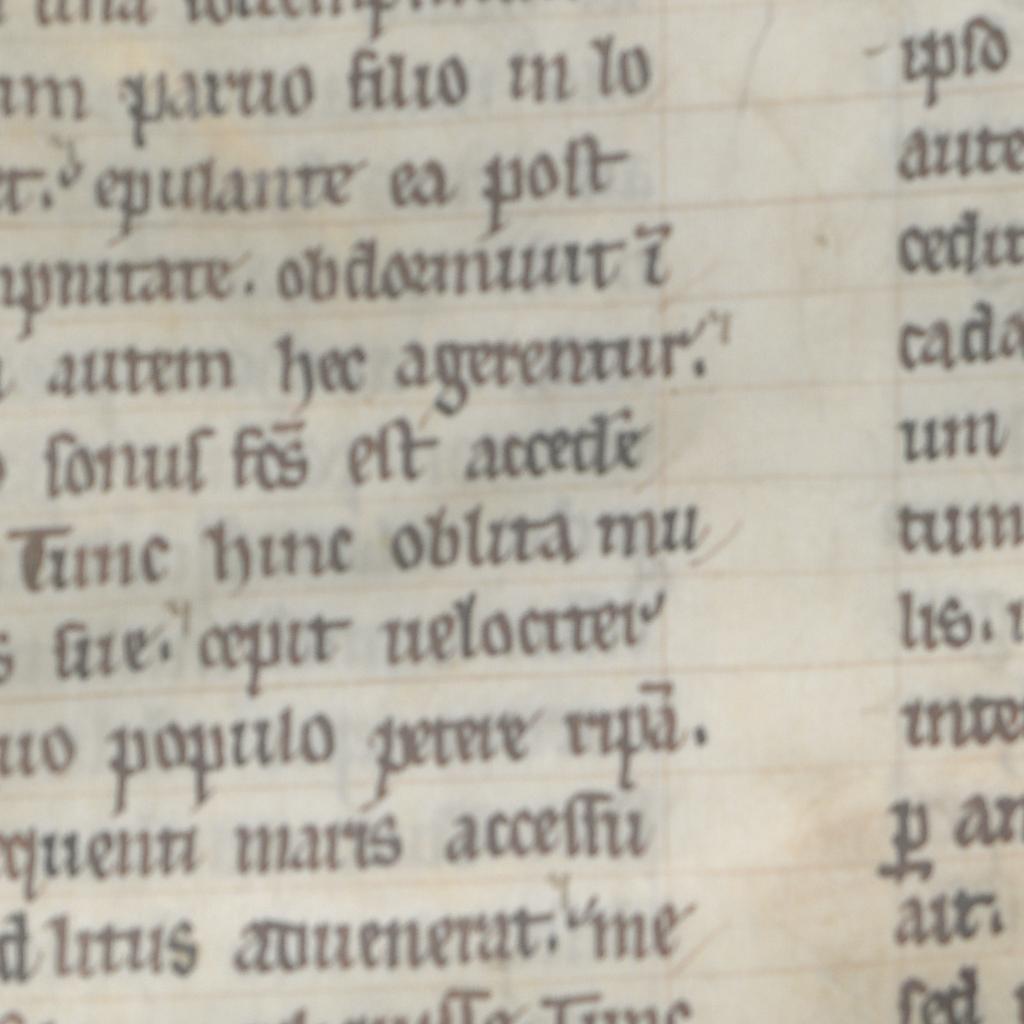 paruo filio in lo
epulante ea post
obdormiuit ī
autem hec agerentur.
sonus fc̄s est accedē
Tunc hinc oblita mu
sue. cepit uelociter
uo populo petere ripā.
equenti maris accessu
d litus aduenerat. me
ipso
aute
cedit
cada
um
tum
lis.
inte
ꝑ an
ait.
sed